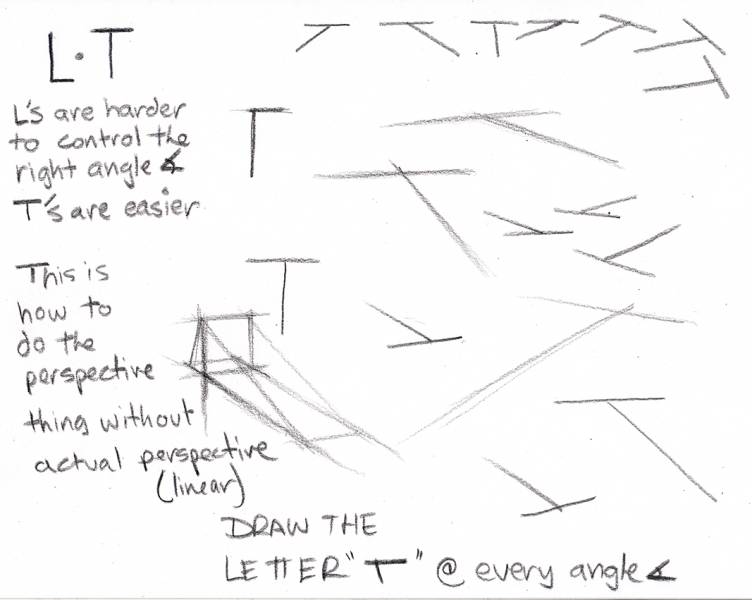 L · T
L's are harder
to control the
right angle ∡
T's are easier
This is
how to
do the
perspective
thing without
actual perspective
(linear)
DRAW THE
LETTER "T" @ every angle ∡